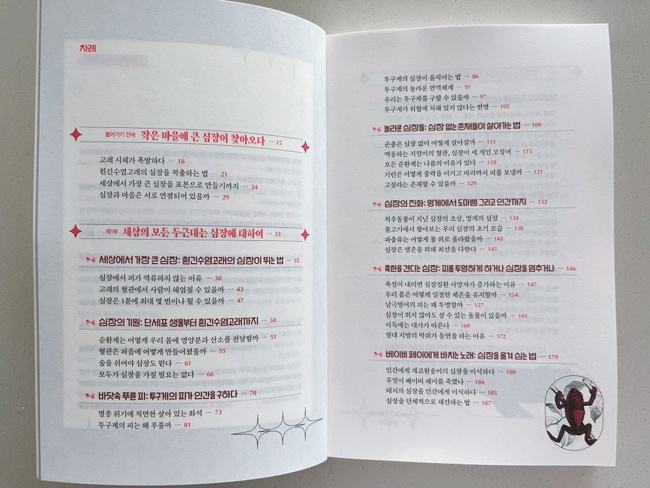 차례
들어가기 전에 작은 마을에 큰 심장이 찾아오다 … 15
고래 시체가 폭발하다 … 18
흰긴수염고래의 심장을 적출하는 법 … 21
세상에서 가장 큰 심장을 표본으로 만들기까지 … 24
심장과 마음은 서로 연결되어 있을까 … 29
제1부 세상의 모든 두근대는 심장에 대하여 … 33
세상에서 가장 큰 심장: 흰긴수염고래의 심장이 뛰는 법 … 35
심장에서 피가 역류하지 않는 이유 … 38
고래의 혈관에서 사람이 헤엄칠 수 있을까 … 43
심장은 1분에 최대 몇 번이나 뛸 수 있을까 … 47
심장의 기원: 단세포 생물부터 흰긴수염고래까지 … 50
순환계는 어떻게 우리 몸에 영양분과 산소를 전달할까 … 51
혈관은 처음에 어떻게 만들어졌을까 … 55
숨을 쉬어야 심장도 뛴다 … 61
모두가 심장을 가질 필요는 없다 … 66
바닷속 푸른 피: 투구게의 피가 인간을 구하다 … 70
멸종 위기에 직면한 살아 있는 화석 … 73
투구게의 피는 왜 푸를까 … 81
투구게의 심장이 움직이는 법 … 86
투구게의 놀라운 면역체계 … 91
우리는 투구게를 구할 수 있을까 … 97
투구게가 위험에 처해 있지 않다는 변명 … 105
놀라운 심장들: 심장 없는 존재들이 살아가는 법 … 109
곤충은 심장 없이 어떻게 살아갈까 … 111
맥동하는 지렁이의 혈관, 심장이 세 개인 오징어 … 115
모든 순환계는 나름의 이유가 있다 … 118
기린은 어떻게 중력을 이기고 머리까지 피를 보낼까 … 121
고질라는 존재할 수 있을까 … 129
심장의 진화: 멍게에서 도마뱀 그리고 인간까지 … 132
척추동물이 지닌 심장의 조상, 멍게의 심장 … 134
물고기에서 찾아보는 우리 심장의 초기 모습 … 138
파충류는 어떻게 물 위로 올라왔을까 … 141
심장은 생존을 위해 최선을 다한다 … 145
혹한을 견디는 심장: 피를 투명하게 하거나 심장을 멈추거나 … 146
폭설이 내리면 심장질환 사망자가 증가하는 이유 … 147
우리 몸은 어떻게 일정한 체온을 유지할까 … 154
남극빙어의 피는 왜 투명할까 … 157
심장이 뛰지 않아도 살 수 있는 동물이 있을까 … 161
이득에는 대가가 따른다 … 169
열대 지방의 박쥐가 동면을 하는 이유 … 172
베이비 페이에게 바치는 노래: 심장을 옮겨 심는 법 … 179
인간에게 개코원숭이의 심장을 이식하다 … 180
무엇이 베이비 페이를 죽였나 … 184
돼지의 심장을 인간에게 이식하다 … 185
심장을 단계적으로 재건하는 법 … 187